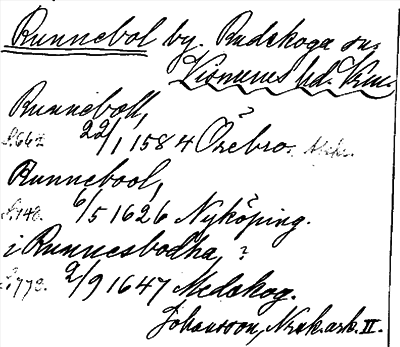 Runnebol by. Rudskoga sn.
Visnums hd. Vrm.
Runneboll,
22/1 1584 Örebro.
Runnebool,
6/5 1626 Nyköping.
i Runnesbodha, ?
2/9 1647 Medskog.
Johansson, Nk.ark. II.